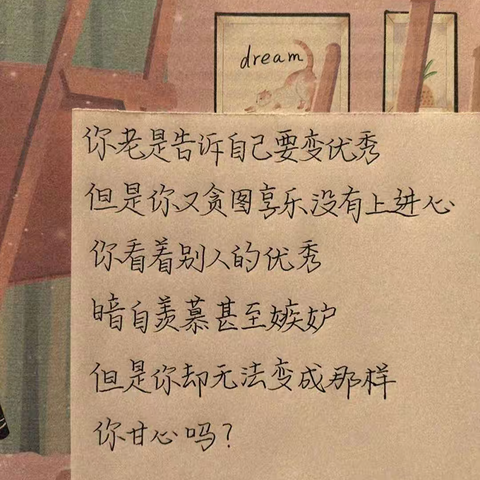 dream
你老是告诉自己要变优秀
但是你又贪图享乐没有上进心
你看着别人的优秀
暗自羡慕甚至嫉妒
但是你却无法变成那样
你甘心吗?